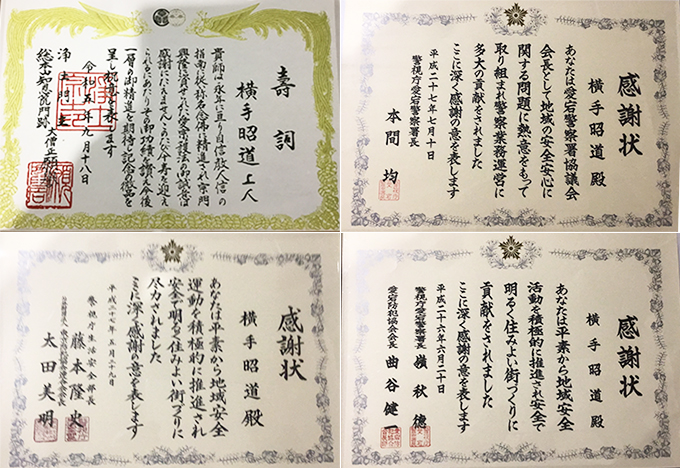 壽詞
横手昭道上人
貴師は永年に亘り自信敎人信の
指南に扶称名念佛に精進され宗門
興隆に資された愛宗護法の御誠意
感謝にたえませんここに
これにあたりその御功績を讃え今後
一層の御精進を期待し記念徽章を
呈し祝意を表します
令和五年九月十八日
浄土門主
総本山知恩院門跡
感謝状
横手昭道殿
あなたは愛宕警察署協議会
会長として地域の安全安心に
関する問題に熱意をもって
取り組まれ警察業務運営に
多大の貢献をされました
ここに深く感謝の意を表します
平成二十七年七月十日
警視庁愛宕警察署長
本間均
感謝状
横手昭道殿
あなたは平素から地域安全
運動を積極的に推進され
安全で明るく住みよい街づくりに
尽力されました
ここに深く感謝の意を表します
警視庁生活安全部長
藤本隆史
太田美明
感謝状
横手昭道殿
あなたは平素から地域安全
活動を積極的に推進され安全で
明るく住みよい街づくりに
貢献をされました
ここに深く感謝の意を表します
平成二十六年六月二十日
警視庁愛宕警察署長
嶺秋億
愛宕防犯協会会長
曲谷健一